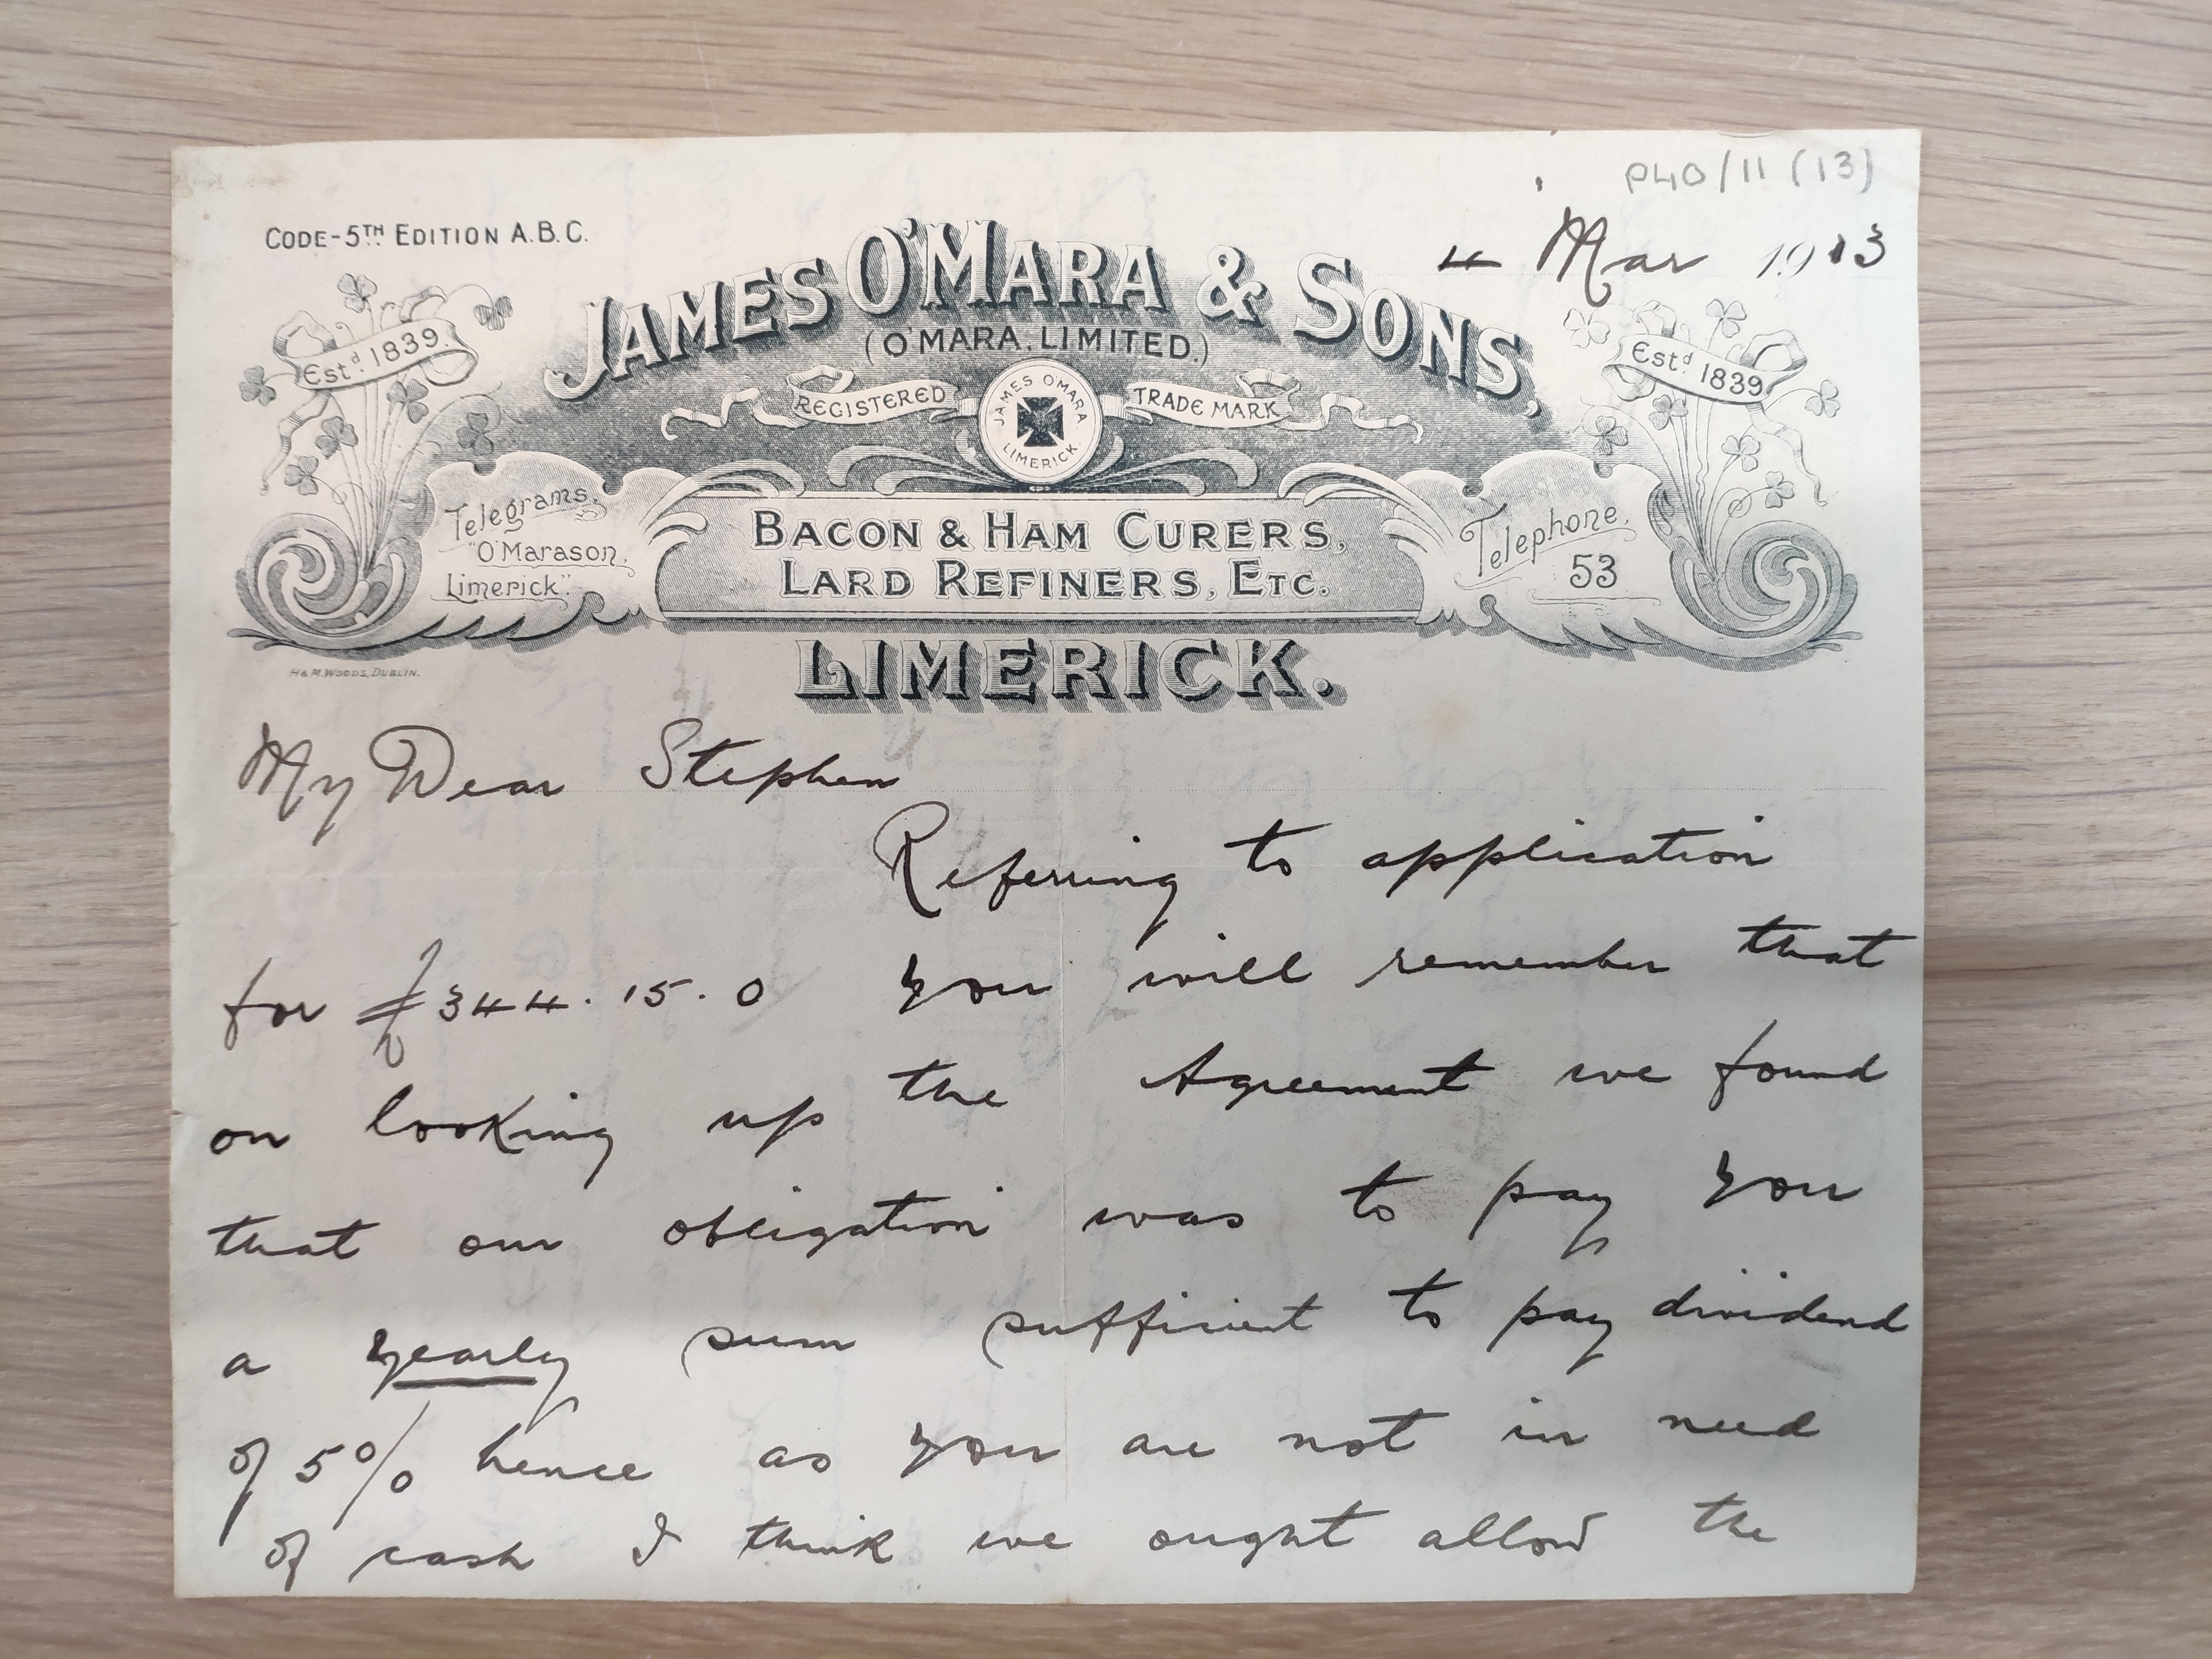 P40/11 (13)
CODE-5TH EDITION A.B.C.
4 Mar 1913
JAMES O'MARA & SONS,
(O'MARA, LIMITED.)
Estd. 1839.
Estd. 1839
REGISTERED
TRADE MARK
JAMES O'MARA
LIMERICK
Telegrams,
"O'Marason,
Limerick".
BACON & HAM CURERS,
LARD REFINERS, ETC.
Telephone.
53
LIMERICK.
H & M. WOODS, DUBLIN.
My Dear Stephen
Referring to application
for £344.15.0 you will remember that
on looking up the Agreement we found
that our obligation was to pay you
a yearly sum sufficient to pay dividend
of 5% hence as you are not in need
of cash I think we ought allow the